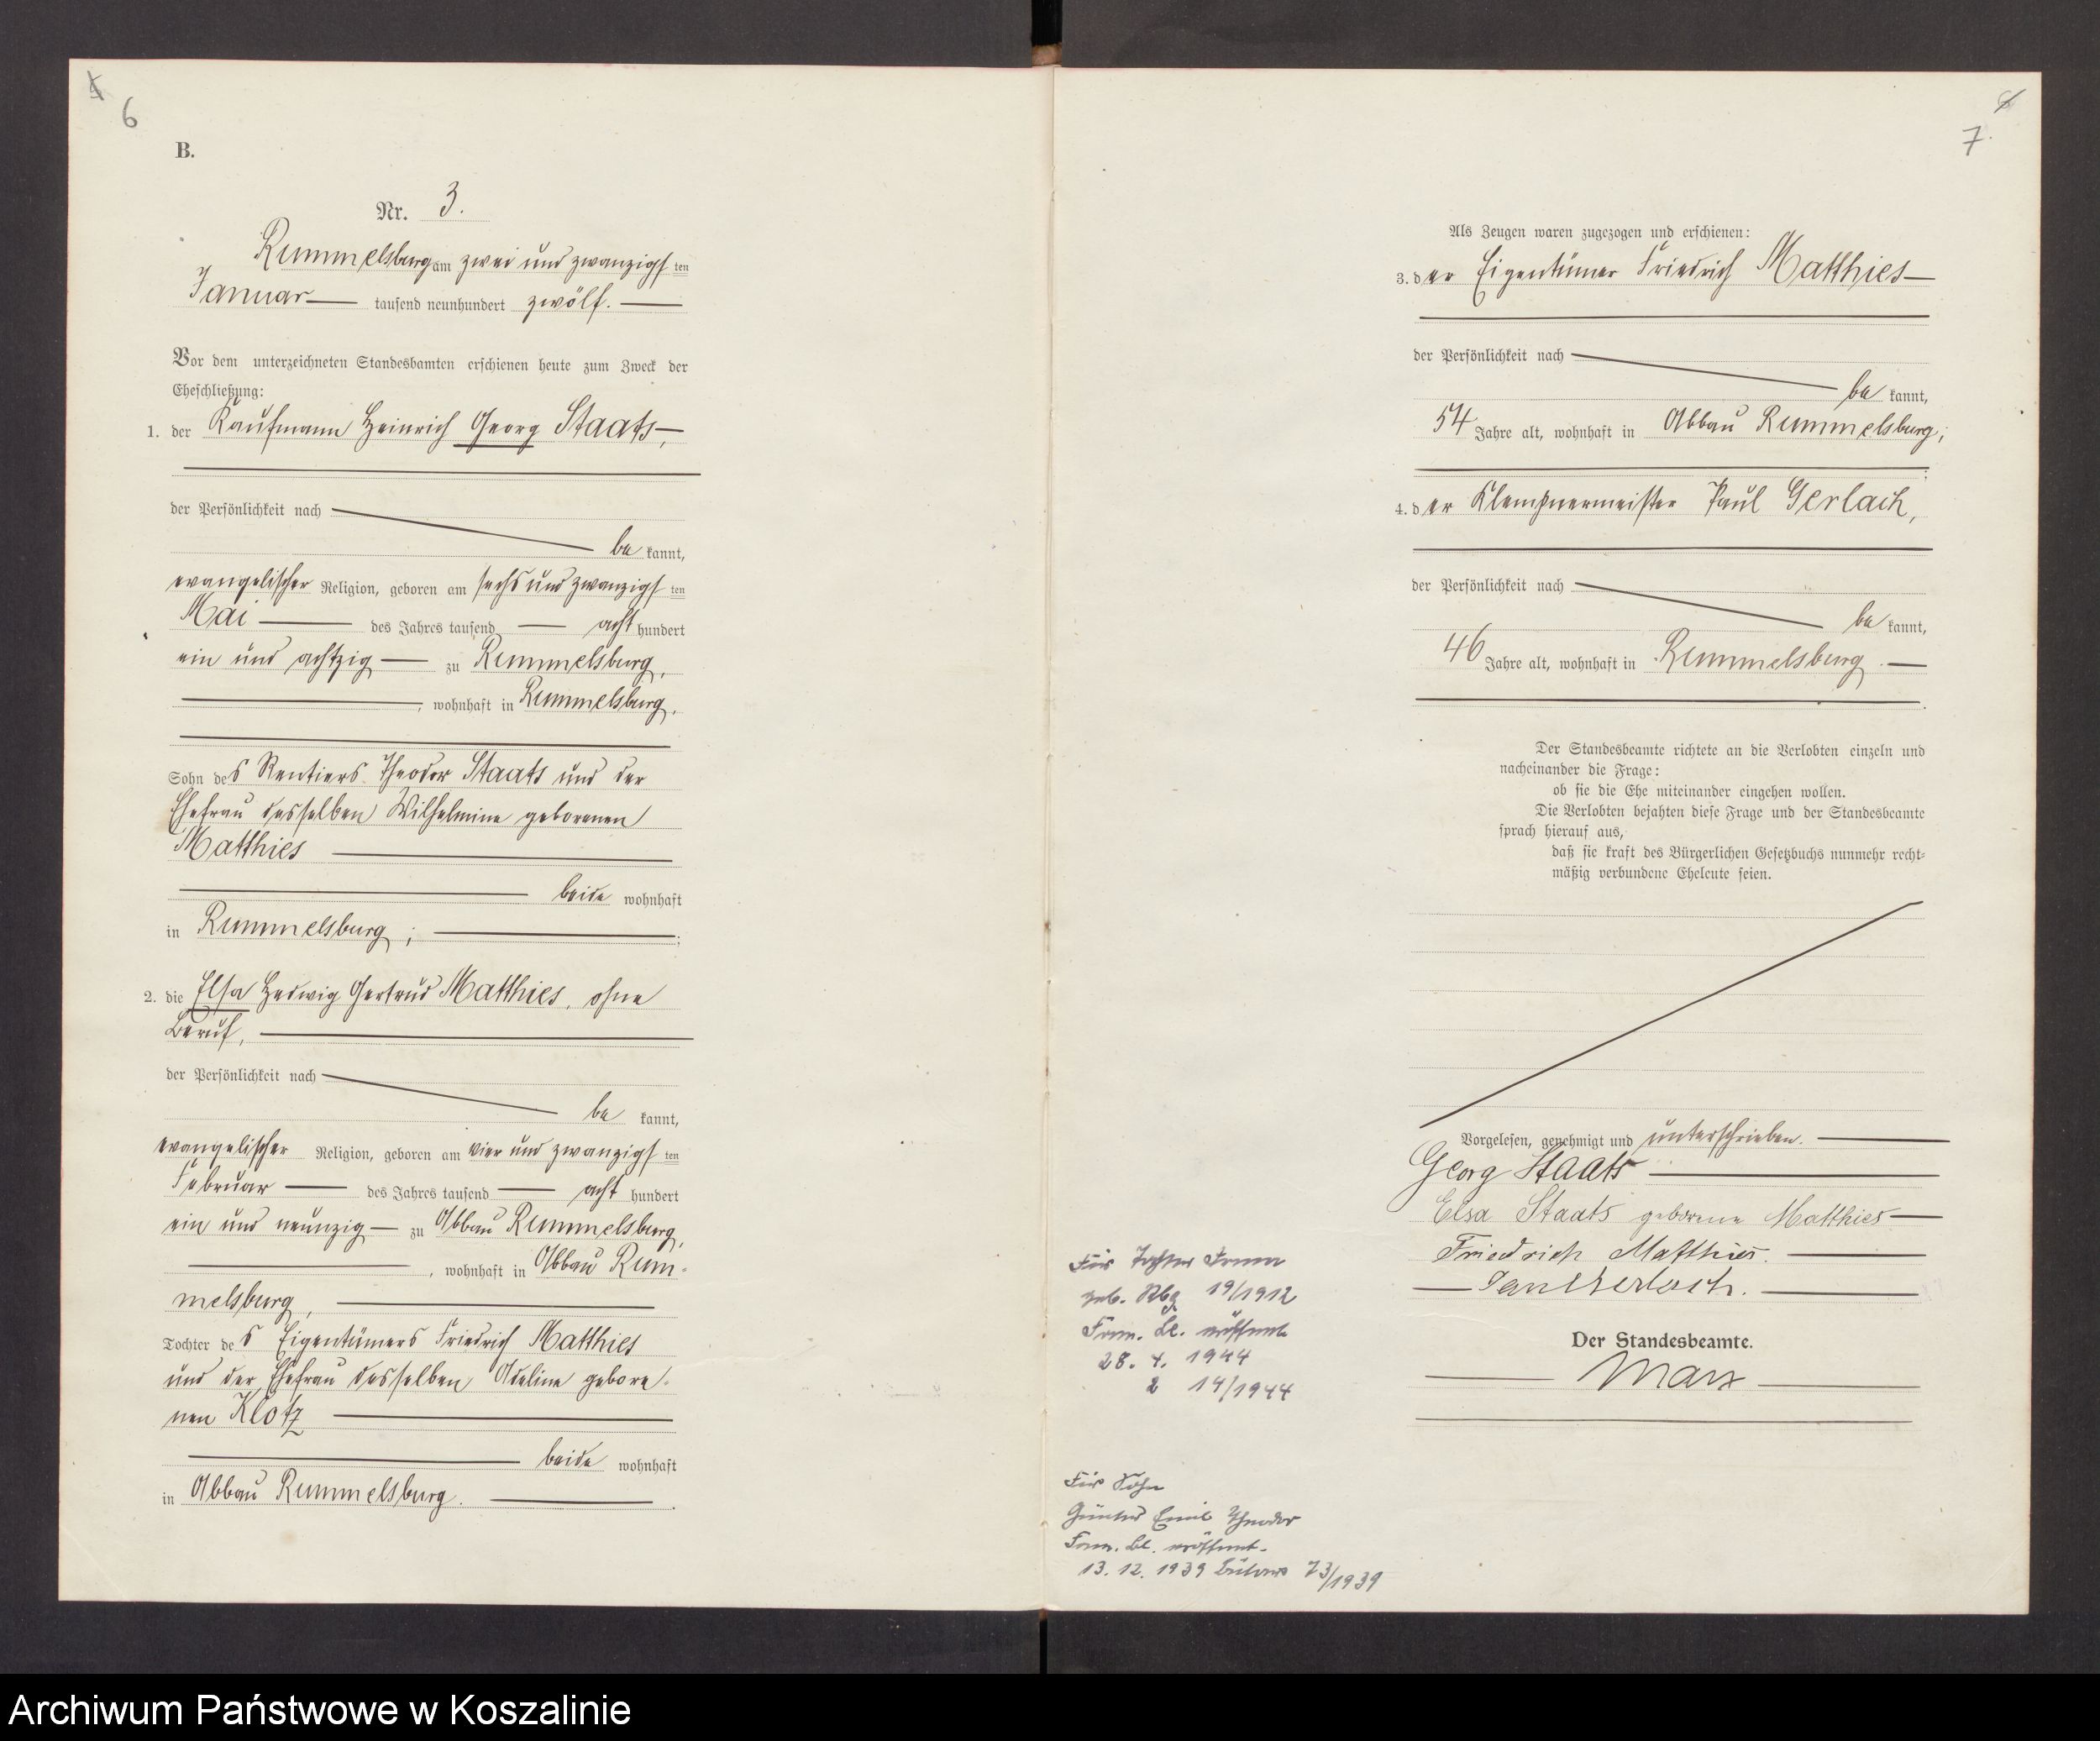 5
6
B.
Nr. 3.
Rummelsburg am zwei und zwanzigsten
Januar tausend neunhundert zwölf.
Vor dem unterzeichneten Standesbamten erschienen heute zum Zweck der
Eheschließung:
1. der Kaufmann Heinrich Georg Staats,
der Persönlichkeit nach
be kannt,
evangelischer Religion, geboren am sechs und zwanzigsten
Mai des Jahres tausend acht hundert
ein und achtzig zu Rummelsburg,
, wohnhaft in Rummelsburg,
Sohn des Rentiers Theodor Staats und der
Ehefrau desselben Wilhelmine geborenen
Matthies
beide wohnhaft
in Rummelsburg;
2. die Elsa Hedwig Gertrud Matthies, ohne
Beruf,
der Persönlichkeit nach
be kannt,
evangelischer Religion, geboren am vier und zwanzigsten
Februar des Jahres tausend acht hundert
ein und neunzig zu Abbau Rummelsburg,
, wohnhaft in Abbau Rum-
melsburg,
Tochter des Eigentümers Friedrich Matthies
und der Ehefrau desselben Adeline gebore-
nen Klotz
beide wohnhaft
in Abbau Rummelsburg.
7.
Als Zeugen waren zugezogen und erschienen:
3. der Eigentümer Friedrich Matthies
der Persönlichkeit nach
be kannt,
54 Jahre alt, wohnhaft in Abbau Rummelsburg;
4. der Klempnermeister Paul Gerlach,
der Persönlichkeit nach
be kannt,
46 Jahre alt, wohnhaft in Rummelsburg.
Der Standesbeamte richtete an die Verlobten einzeln und
nacheinander die Frage:
ob sie die Ehe miteinander eingehen wollen.
Die Verlobten bejahten diese Frage und der Standesbeamte
sprach hierauf aus,
daß sie kraft des Bürgerlichen Gesetzbuchs nunmehr recht-
mäßig verbundene Eheleute seien.
Vorgelesen, genehmigt und unterschrieben.
Georg Staats
Elsa Staats geborene Matthies
Friedrich Matthies.
Paul Gerlach.
Der Standesbeamte.
Marx
Für Tochter
geb. Rbg 19/1912
Fam. Bl. eröffnet
28. 4. 1944
2 14/1944
Für Sohn
Günter Emil Theodor
Fam. Bl. eröffnet.
13. 12. 1939 Bütow 73/1939
Archiwum Państwowe w Koszalinie